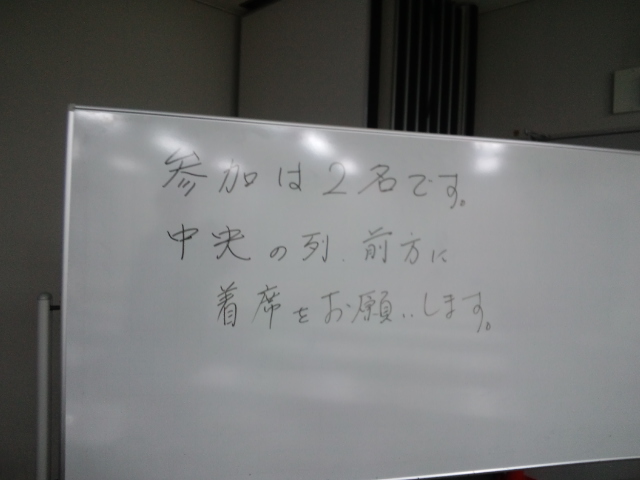 参加は2名です。
中央の列、前方に
着席をお願いします。